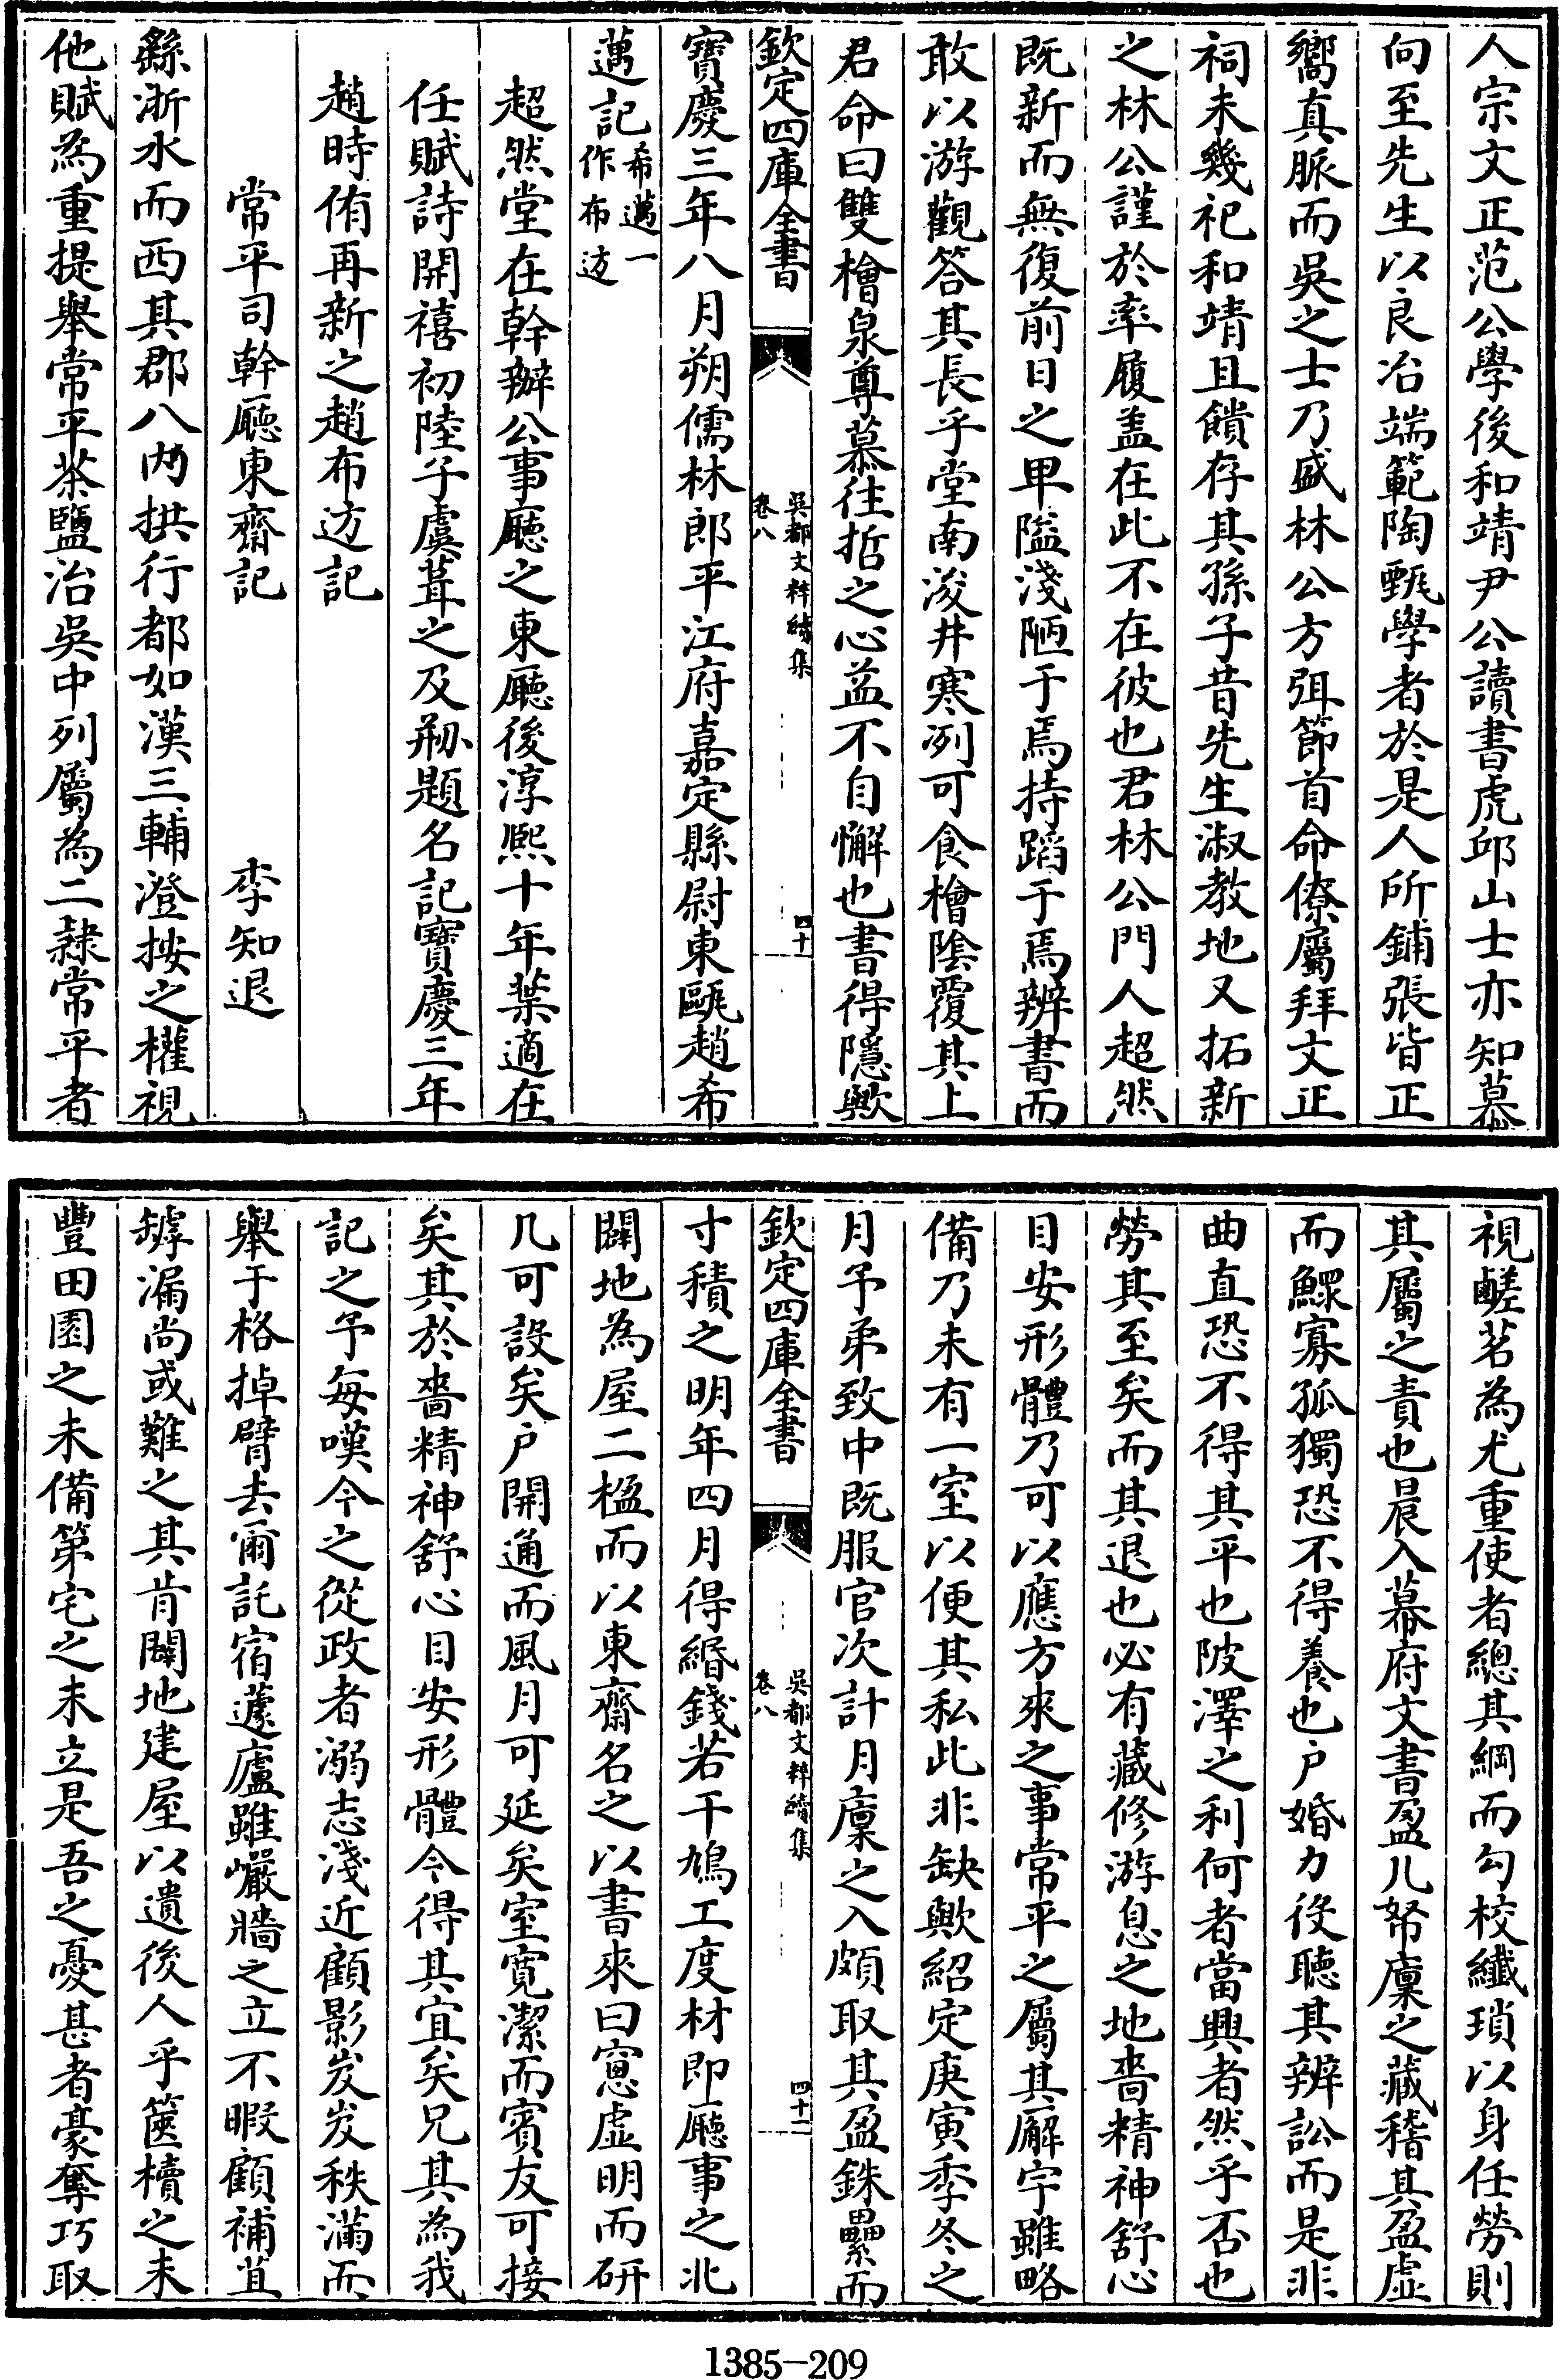 人宗文正范公學後和靖尹公讀書虎邱山士亦知慕
向至先生以良冶端範陶甄學者於是人所鋪張皆正
嚮真脈而吳之士乃盛林公方弭節首命僚屬拜文正
祠未幾祀和靖且饋存其孫子昔先生淑教地又拓新
之林公謹於率履盖在此不在彼也君林公門人超然
既新而無復前日之卑隘淺陋于焉持蹈于焉辨書而
敢以游觀答其長乎堂南浚井寒冽可食檜陰覆其上
君命曰雙檜泉尊慕往哲之心益不自懈也書得隱歟
欽定四庫全書
吳都文粹續集
卷八
四十
寶慶三年八月朔儒林郎平江府嘉定縣尉東甌趙希
邁記希邁一作布迈
超然堂在幹辦公事廳之東廳後淳熙十年葉適在
任賦詩開禧初陸子虡葺之及剏題名記寶慶三年
趙時侑再新之趙布迈記
常平司幹廳東齋記
李知退
繇浙水而西其郡八內拱行都如漢三輔澄按之權視
他賦為重提舉常平茶鹽治吳中列屬為二隸常平者
視鹾茗為尤重使者總其綱而勾校纖瑣以身任勞則
其屬之責也晨入幕府文書盈几帑廩之藏稽其盈虛
而鰥寡孤獨恐不得養也户婚力役聽其辨訟而是非
曲直恐不得其平也陂澤之利何者當興者然乎否也
勞其至矣而其退也必有藏修游息之地嗇精神舒心
目安形體乃可以應方來之事常平之屬其廨宇雖略
備乃未有一室以便其私此非缺歟紹定庚寅季冬之
月予弟致中既服官次計月廩之入頗取其盈銖纍而
欽定四庫全書
吳都文粹續集
卷八
四十一
寸積之明年四月得緡錢若干鳩工度材即廳事之北
闢地為屋二楹而以東齋名之以書來曰窻虛明而研
几可設矣户開通而風月可延矣室寛潔而賓友可接
矣其於嗇精神舒心目安形體今得其宜矣兄其為我
記之予每嘆今之從政者溺志淺近顧影岌岌秩滿而
舉于格掉臂去爾託宿蘧廬雖巖牆之立不暇顧補苴
罅漏尚或難之其肯闢地建屋以遺後人乎篋櫝之未
豐田園之未備第宅之未立是吾之憂甚者豪奪巧取
1385-209